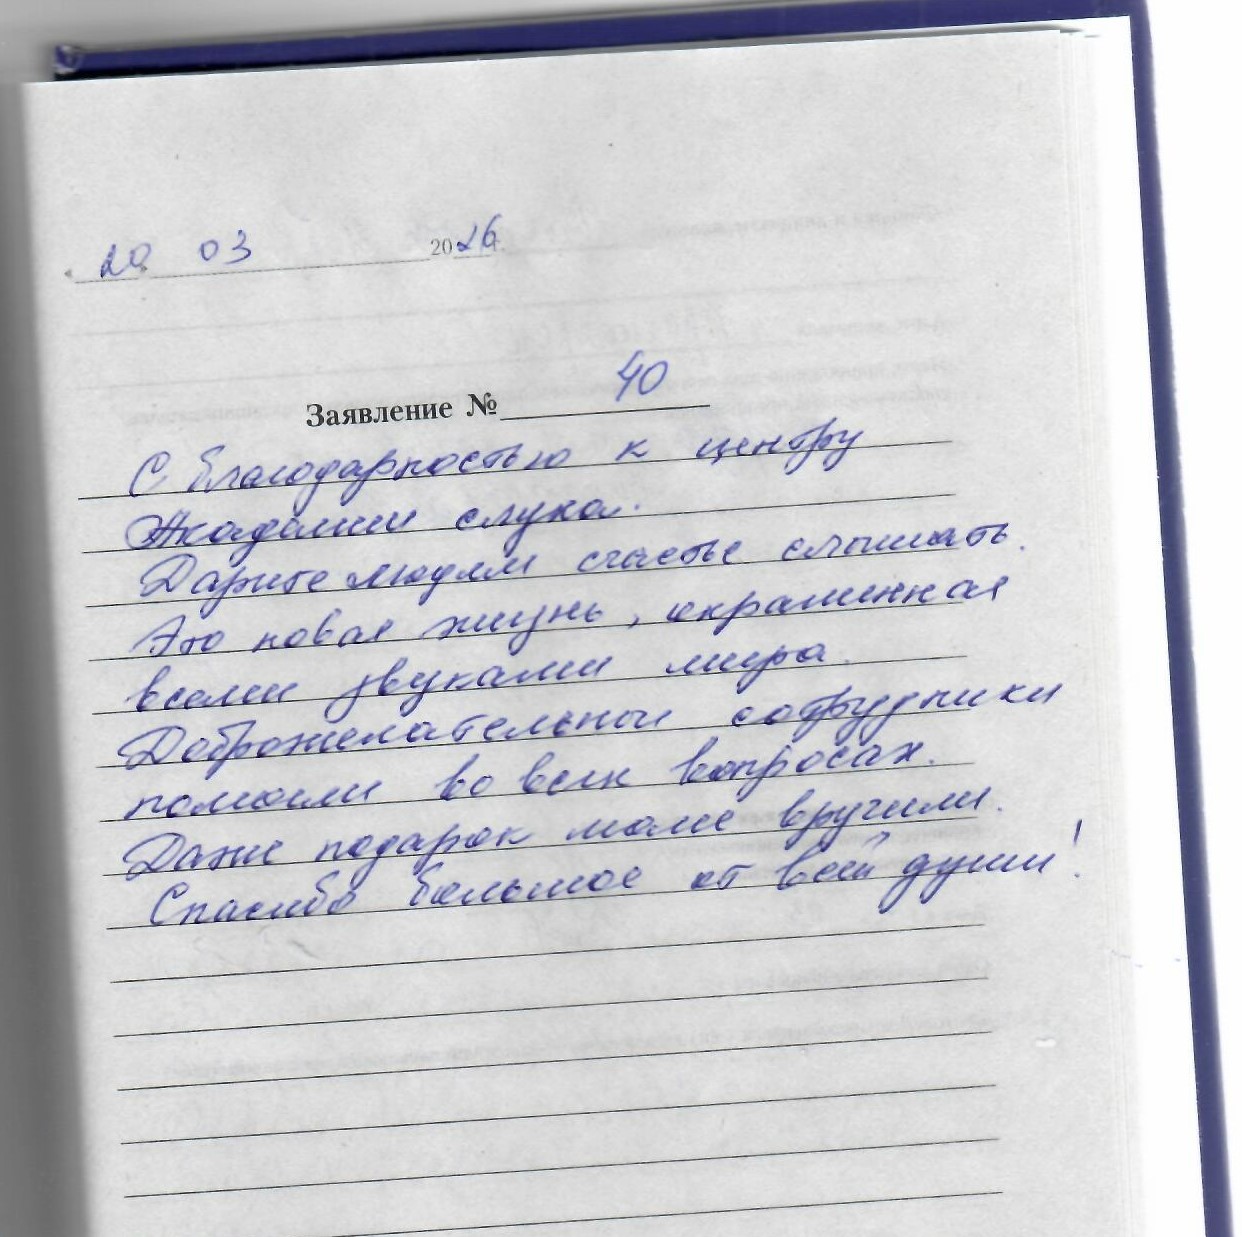 « 20 » 03 2026 г.
Заявление № 40
С благодарностью к центру
Академии слуха.
Дарите людям счастье слышать.
Это новая жизнь, окрашенная
всеми звуками мира.
Доброжелательные сотрудники
помогли во всех вопросах.
Даже подарок маме вручили.
Спасибо большое от всей души!